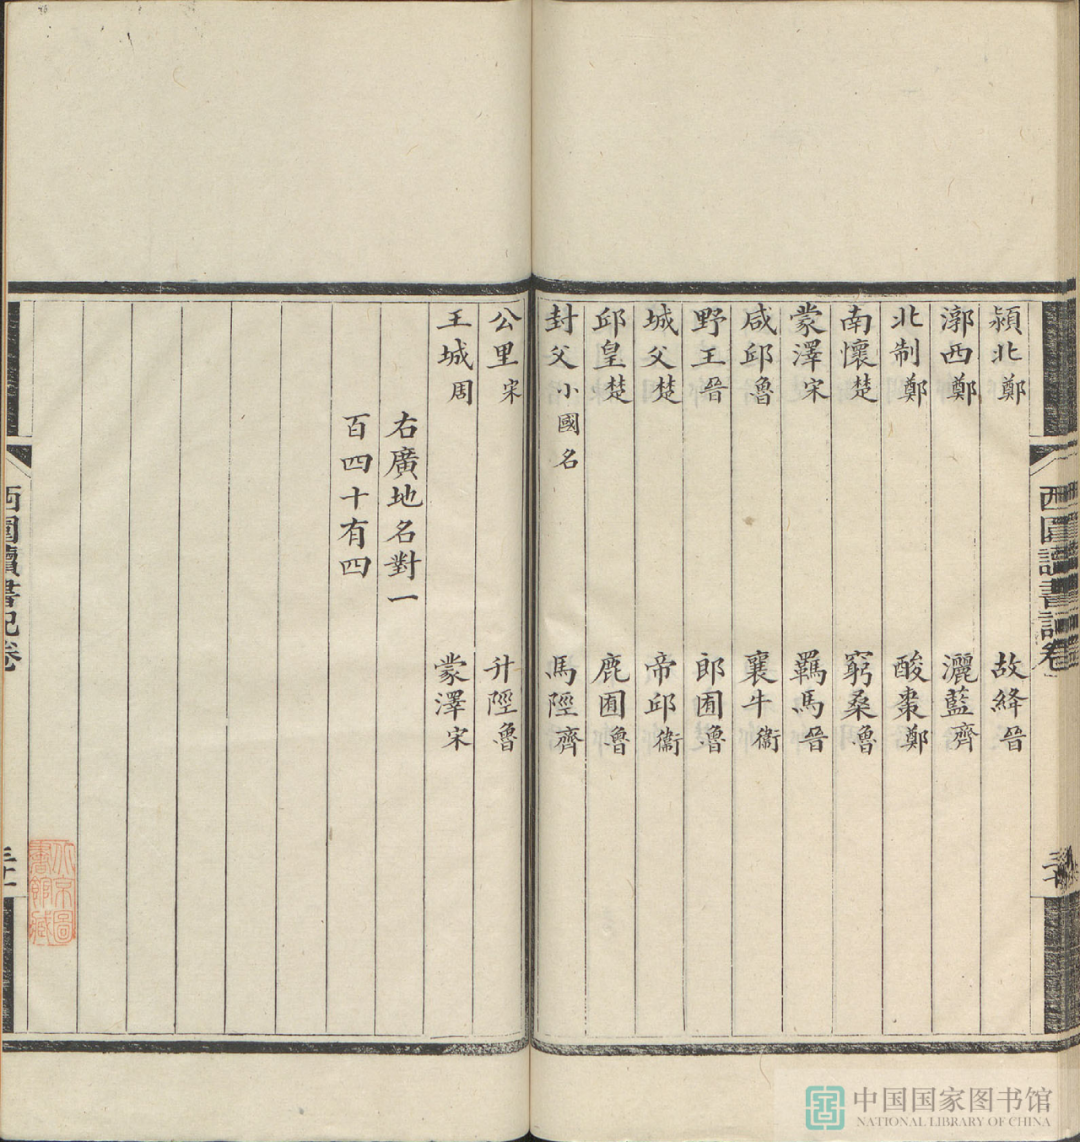 西圃讀書記卷
潁北鄭 故絳晉
漷西鄭 灑藍齊
北制鄭 酸棗鄭
南懷楚 窮桑魯
蒙澤宋 羈馬晉
咸邱魯 襄牛衞
野王晉 郎囿魯
城父楚 帝邱衞
邱皇楚 鹿囿魯
封父小國名 馬陘齊
公里宋 升陘魯
王城周 蒙澤宋
右廣地名對一
百四十有四
西圃讀書記卷
北京圖
書館藏
中国国家图书馆
NATIONAL LIBRARY OF CHINA